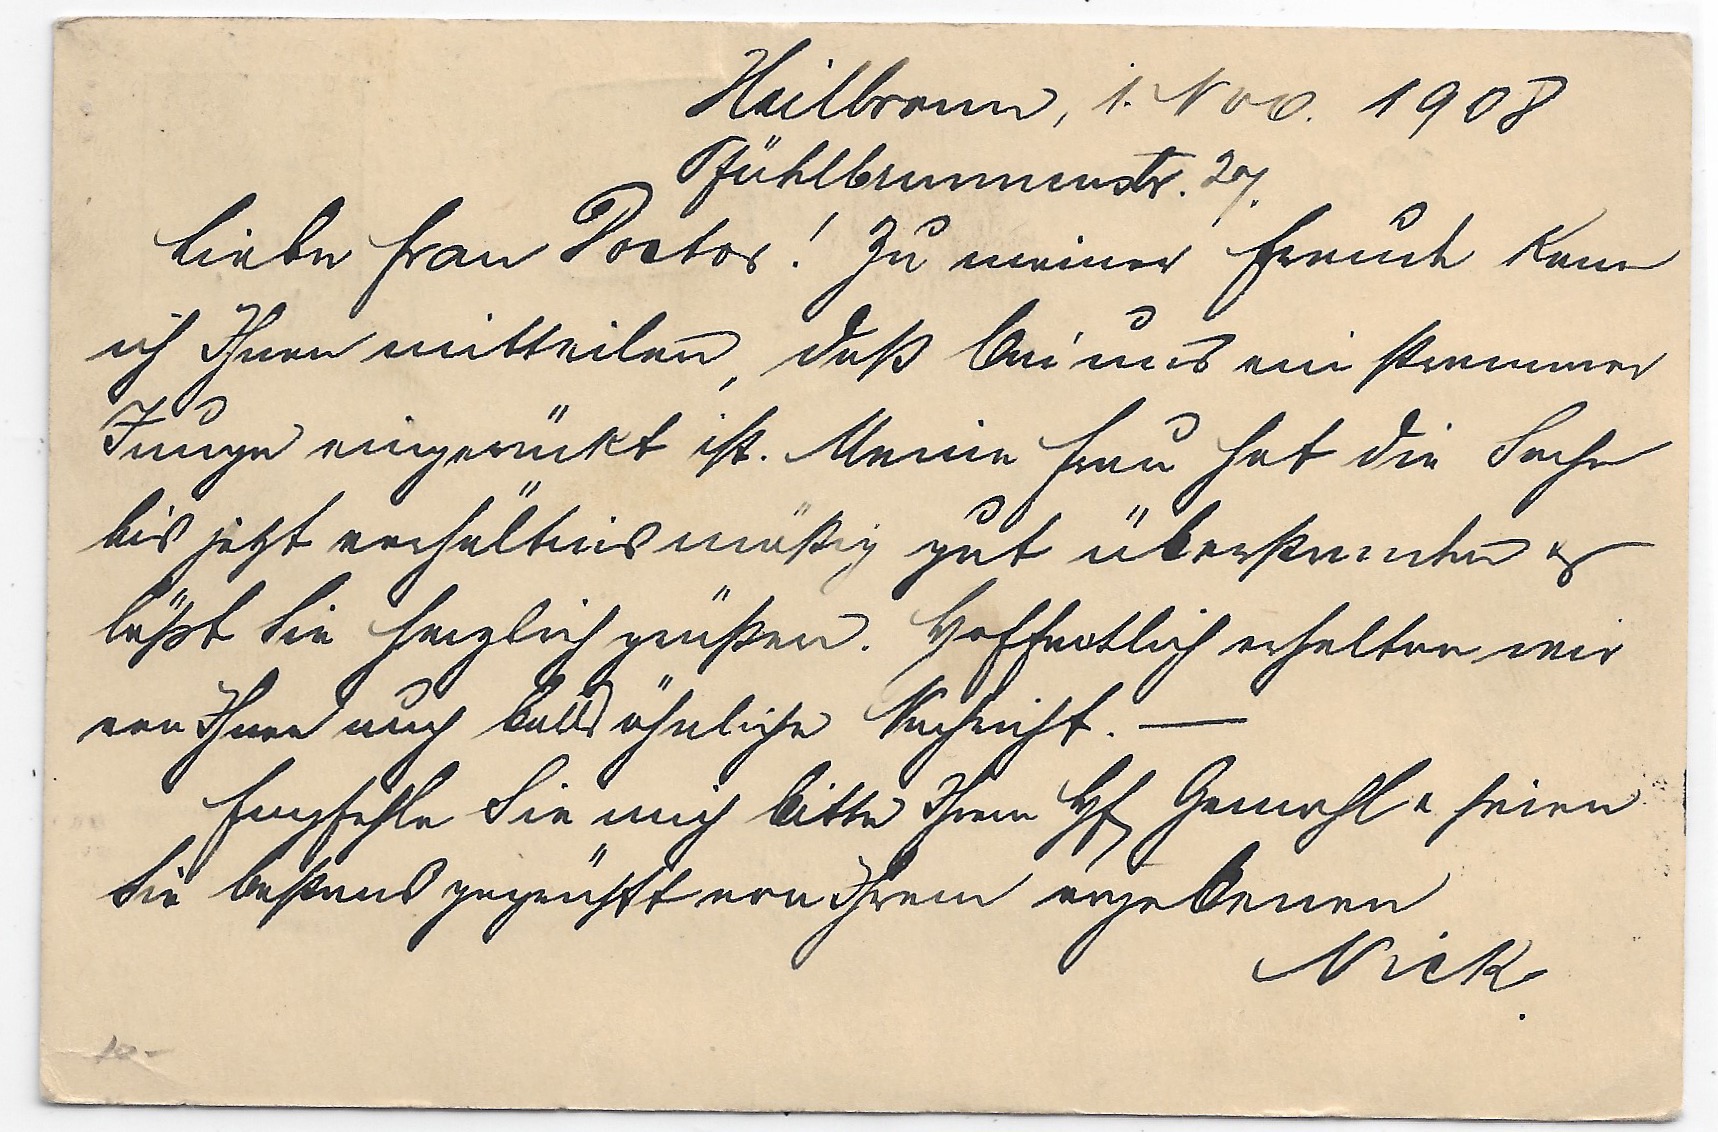 Heilbronn, 1. Nov. 1908
Pfühlbrunnenstr. 27.
Liebe Frau Doctor! Zu meiner Freude kann
ich Ihnen mitteilen, daß bei uns ein strammer
Junge eingerückt ist. Meine Frau hat die Sache
bis jetzt verhältnismäßig gut überstanden &
läßt Sie herzlich grüßen. Hoffentlich erhalten wir
von Ihnen auch bald ähnliche Nachricht. —
Empfehle Sie mich bitte Ihrem H. Gemahl & seien
Sie bestens gegrüßt von Ihrem ergebenen
Nick.
10-